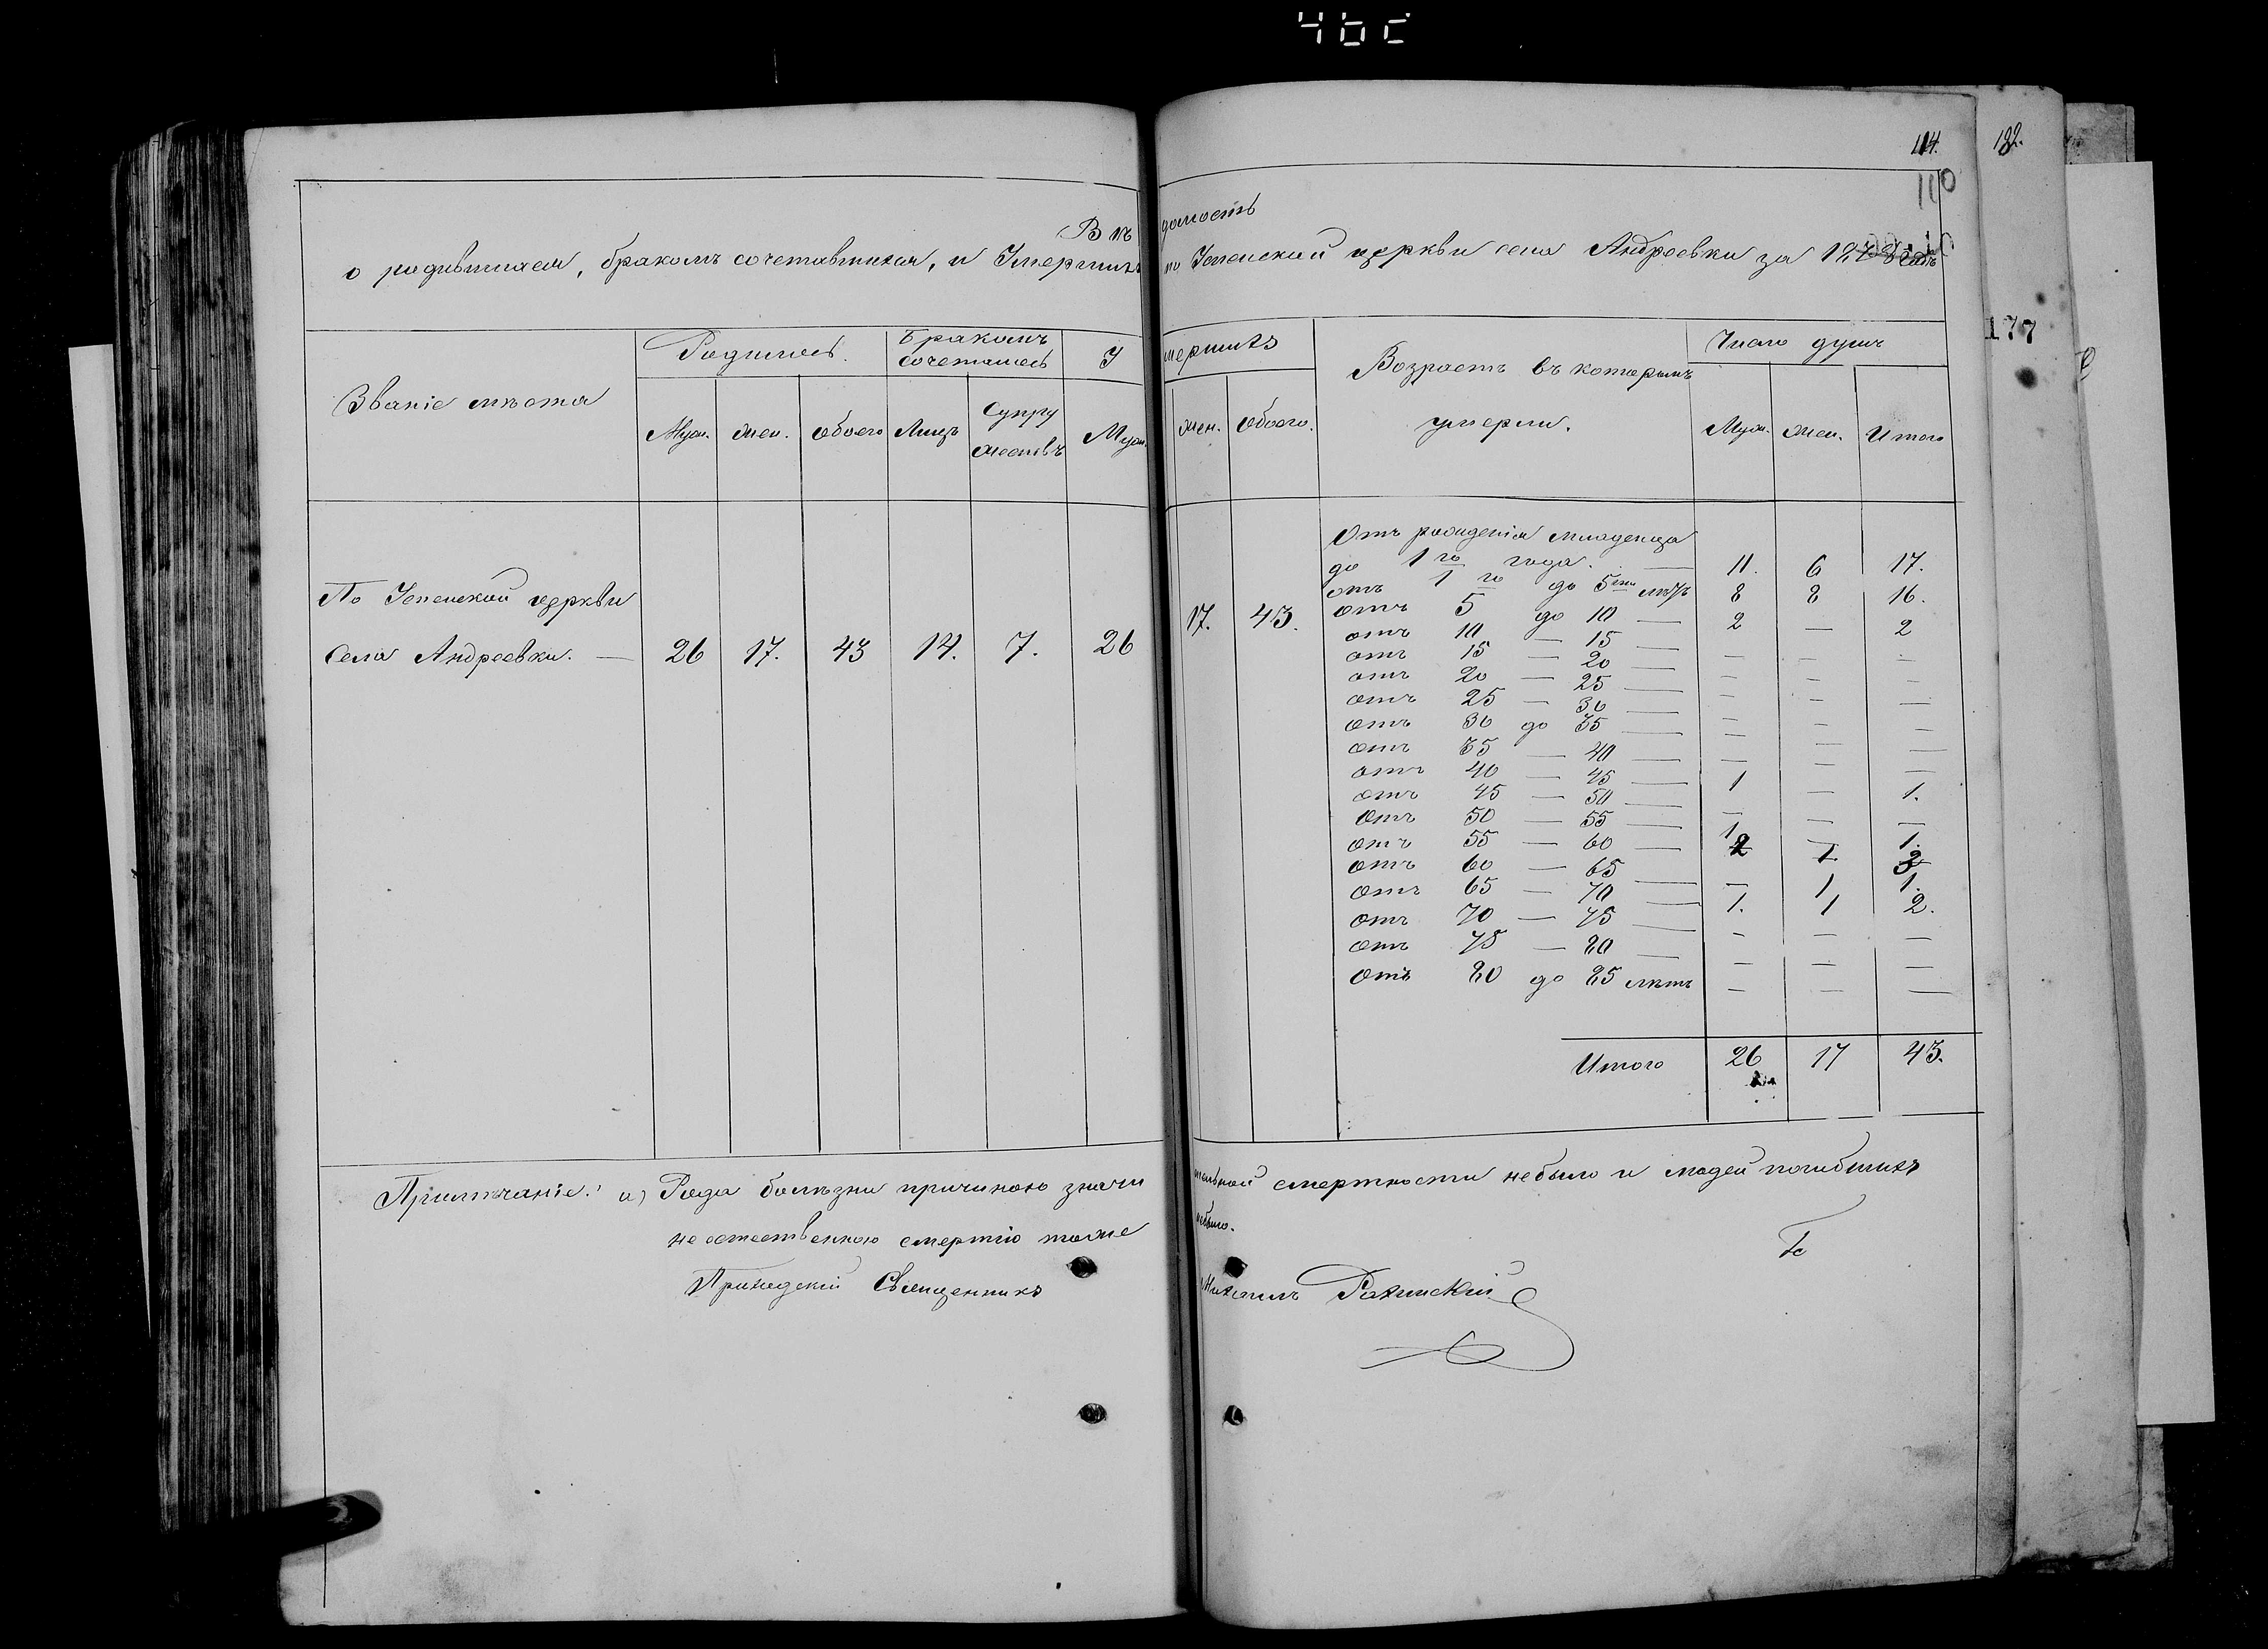 114.
182.
110
177
Вѣдомость
о родившихся, бракомъ сочетавшихся, и Умершихъ по Успенской церкви села Андреевки за 1878 годъ
Званіе мѣста
Родилось.
Бракомъ сочеталось
Умершихъ
Возрастъ въ которымъ умерли.
Число душъ
Муж. жен. обоего Лицъ Супружествъ Муж. жен. обоего. Муж. жен. Итого
По Успенской церкви
Села Андреевки. — 26 17. 43 14. 7. 26 17. 43.
Отъ рожденія младенца
до 1го года. — 11. 6 17.
отъ 1го до 5ти лѣтъ 8 8 16.
отъ 5 до 10 — 2 — 2
отъ 10 — 15 — — — —
отъ 15 — 20 — — — —
отъ 20 — 25 — — — —
отъ 25 — 30 — — — —
отъ 30 до 35 — — — —
отъ 35 — 40 — — — —
отъ 40 — 45 — 1 — 1.
отъ 45 — 50 — — — —
отъ 50 — 55 — 1 — 1.
отъ 55 — 60 — 2 1 3
отъ 60 — 65 — — 1 1.
отъ 65 — 70 — 1. 1 2.
отъ 70 — 75 — — — —
отъ 75 — 80 — — — —
отъ 80 до 85 лѣтъ — — —
Итого 26 17 43.
Примѣчаніе: а) Рода болѣзни причиною значительной смертности небыло и людей погибшихъ
неестественною смертію тоже небыло.
Приходскій Священникъ Михаилъ